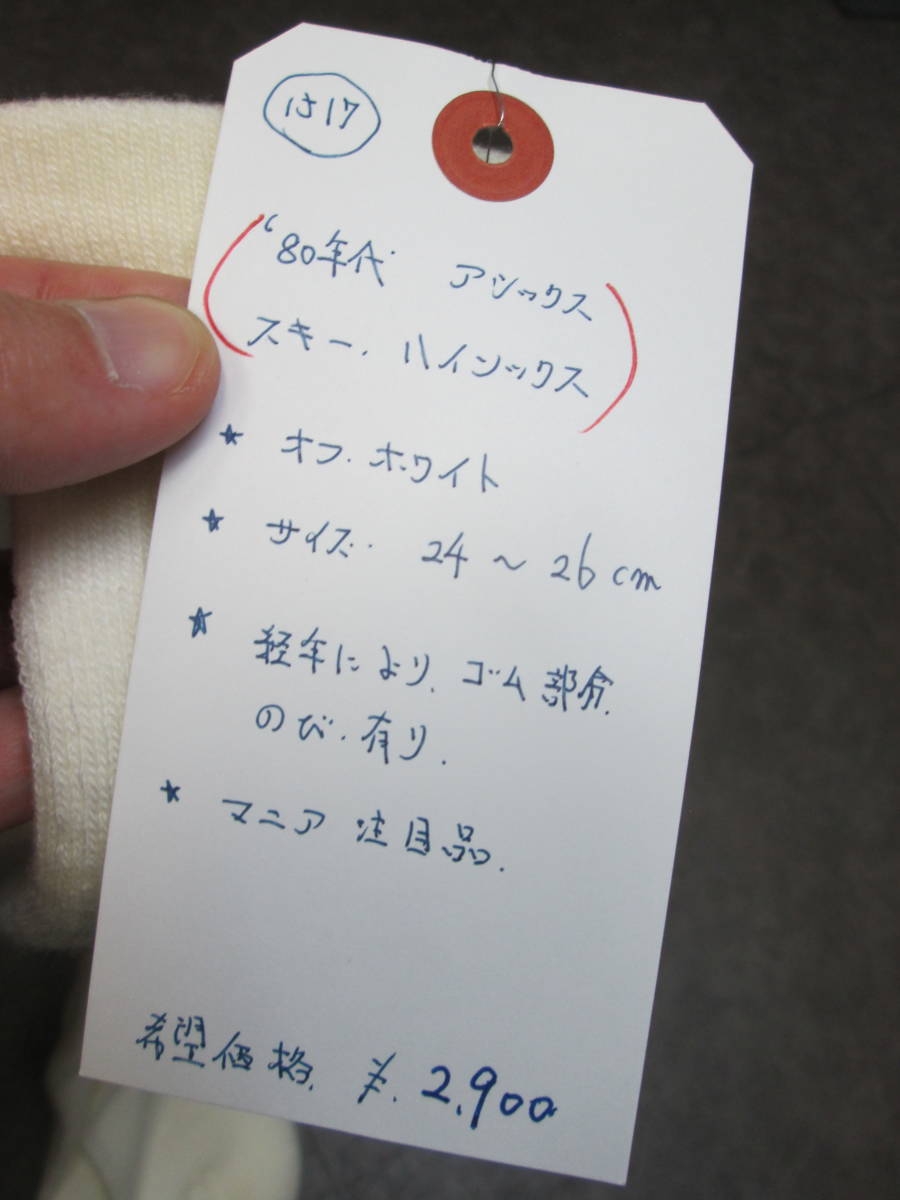 は17
'80年代 アシックス
スキー. ハイソックス
★ オフ.ホワイト
★ サイズ. 24 ~ 26 cm
★ 経年により. ゴム部分.
のび.有り.
★ マニア 注目品.
希望価格. ¥. 2,900